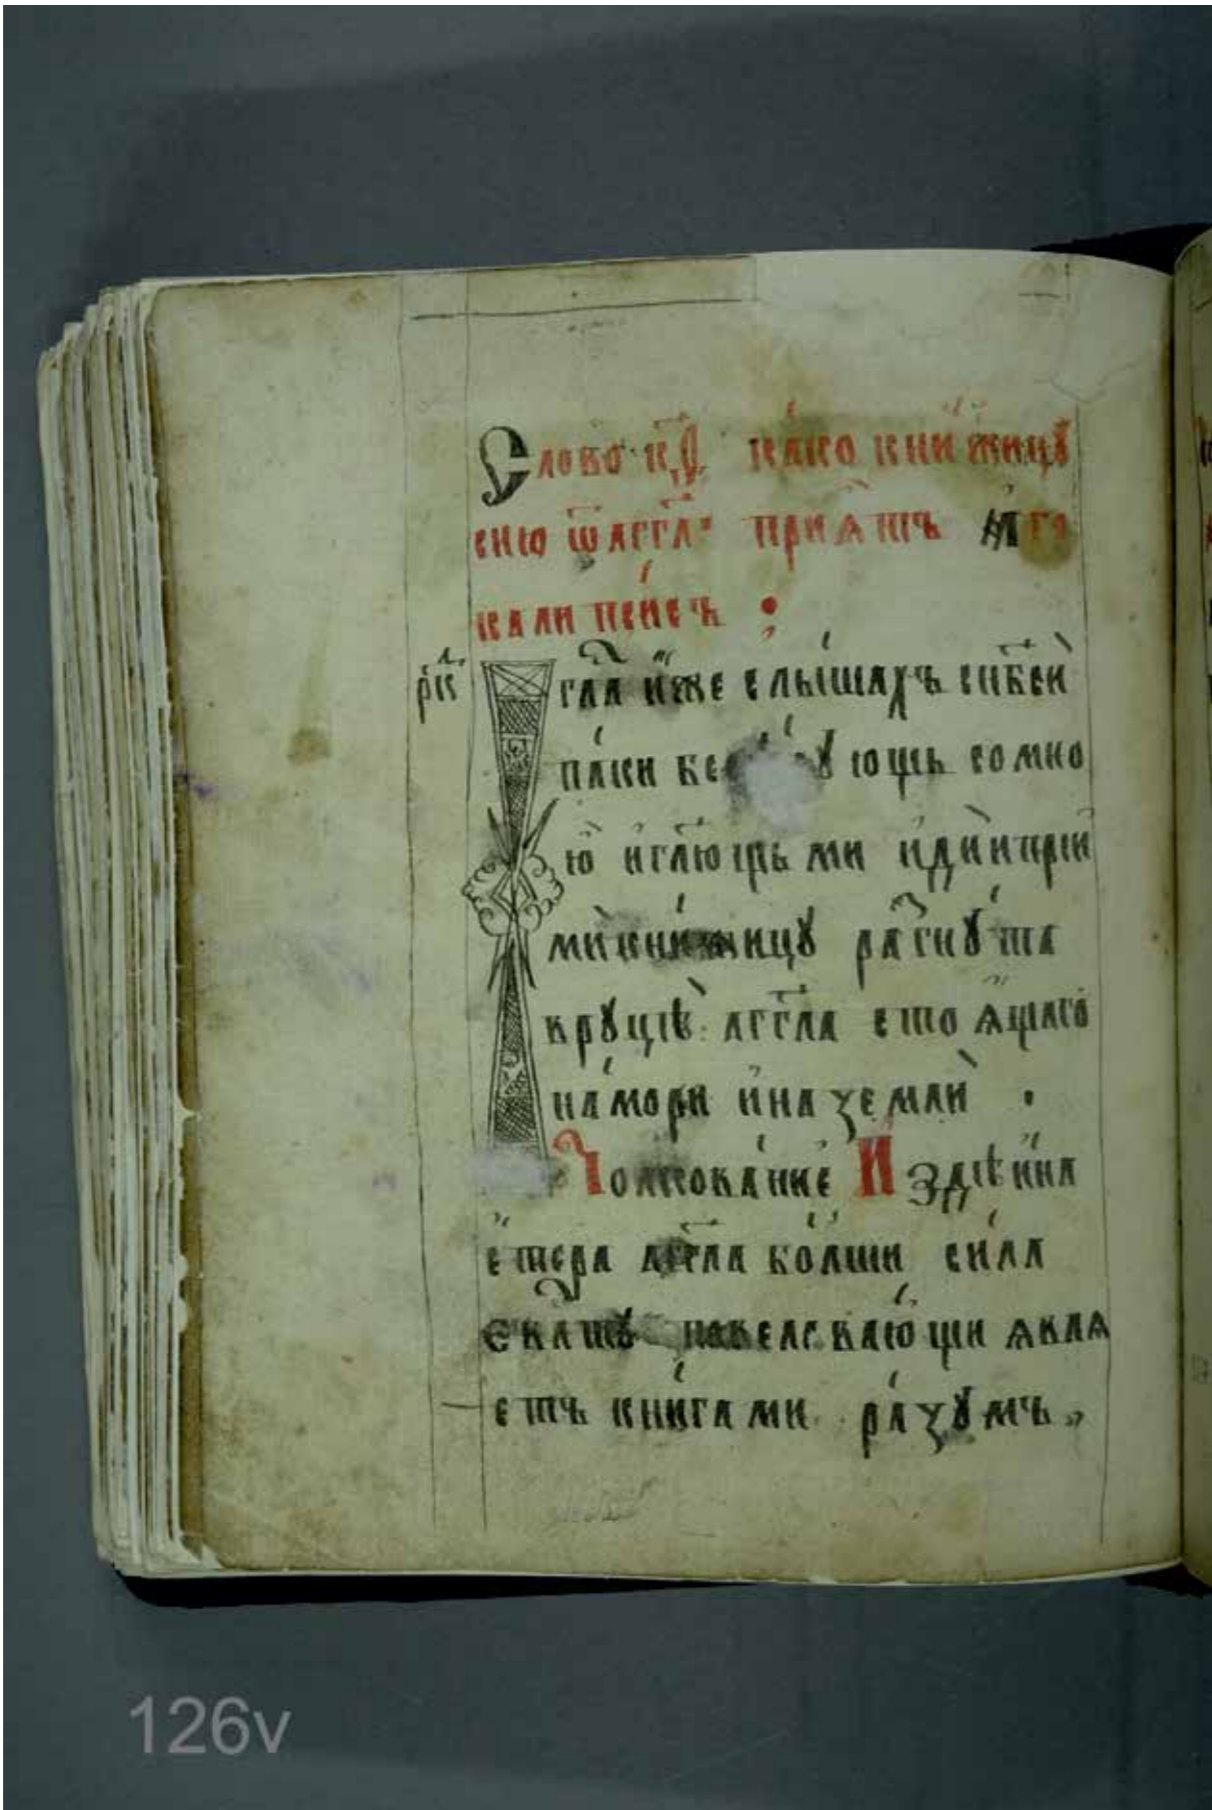 Слово к҃д како книжицу
сию ѿ агг҃ла приѧтъ иѡго
кали псисъ :
рк҃
И гл҃а иже слышахъ сн҃бси
паки бесѣдующь со мно
ю и гл҃ющь ми иди и прїи
ми книжицу разгнута
в руцѣ агг҃ла стоѧщаго
на мори и на земли .
Толкование И здѣ и на
етера агг҃ла болши сила
Єва ту повелеваюши ѧвлѧ
етъ книгами разумъ
126v